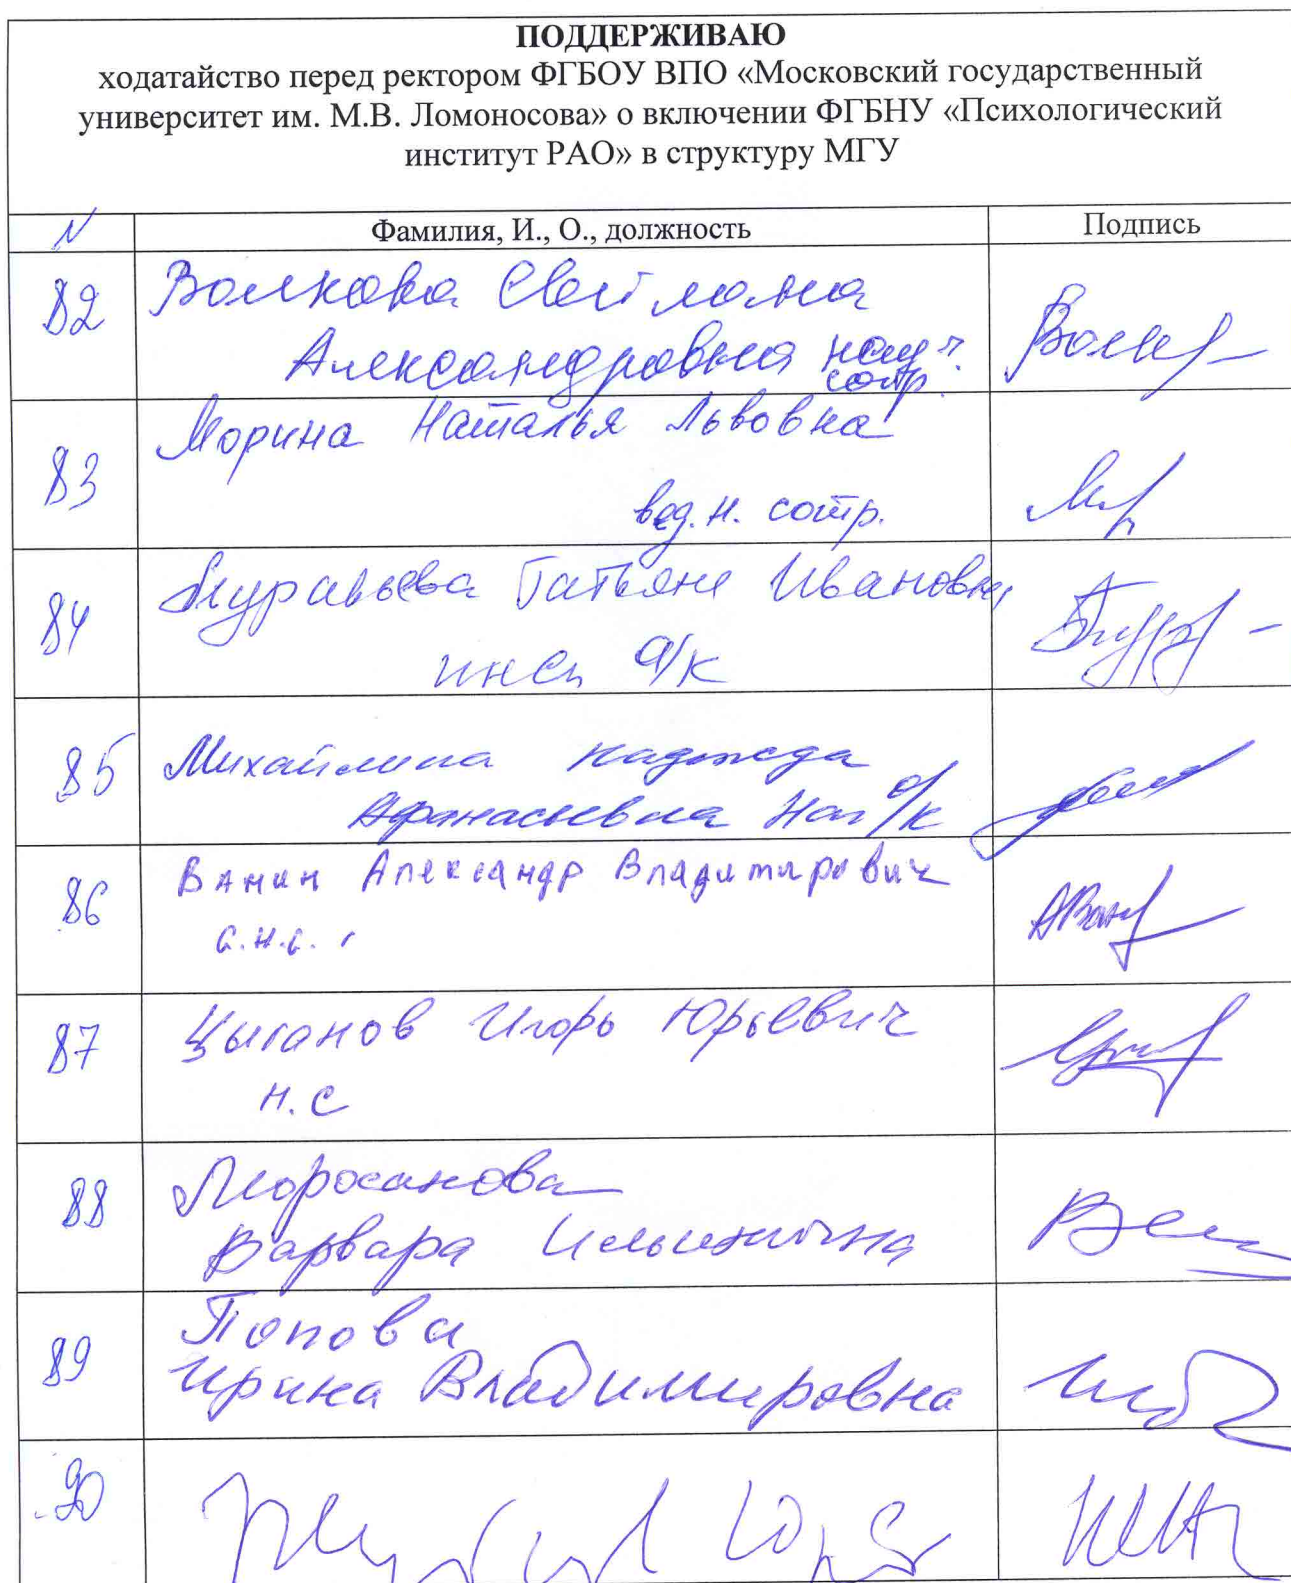 ПОДДЕРЖИВАЮ
ходатайство перед ректором ФГБОУ ВПО «Московский государственный
университет им. М.В. Ломоносова» о включении ФГБНУ «Психологический
институт РАО» в структуру МГУ
N Фамилия, И., О., должность Подпись
82 Волкова Светлана
Александровна науч.
сотр.
83 Морина Наталья Львовна
вед. н. сотр.
84 Муравьева Татьяна Ивановна
инсп о/к
85 Михайлина Надежда
Афанасьевна Нач о/к
86 Ванин Александр Владимирович
с.н.с.
87 Цыганов Игорь Юрьевич
н.с
88 Моросанова
Варвара Ильинична
89 Попова
Ирина Владимировна
90